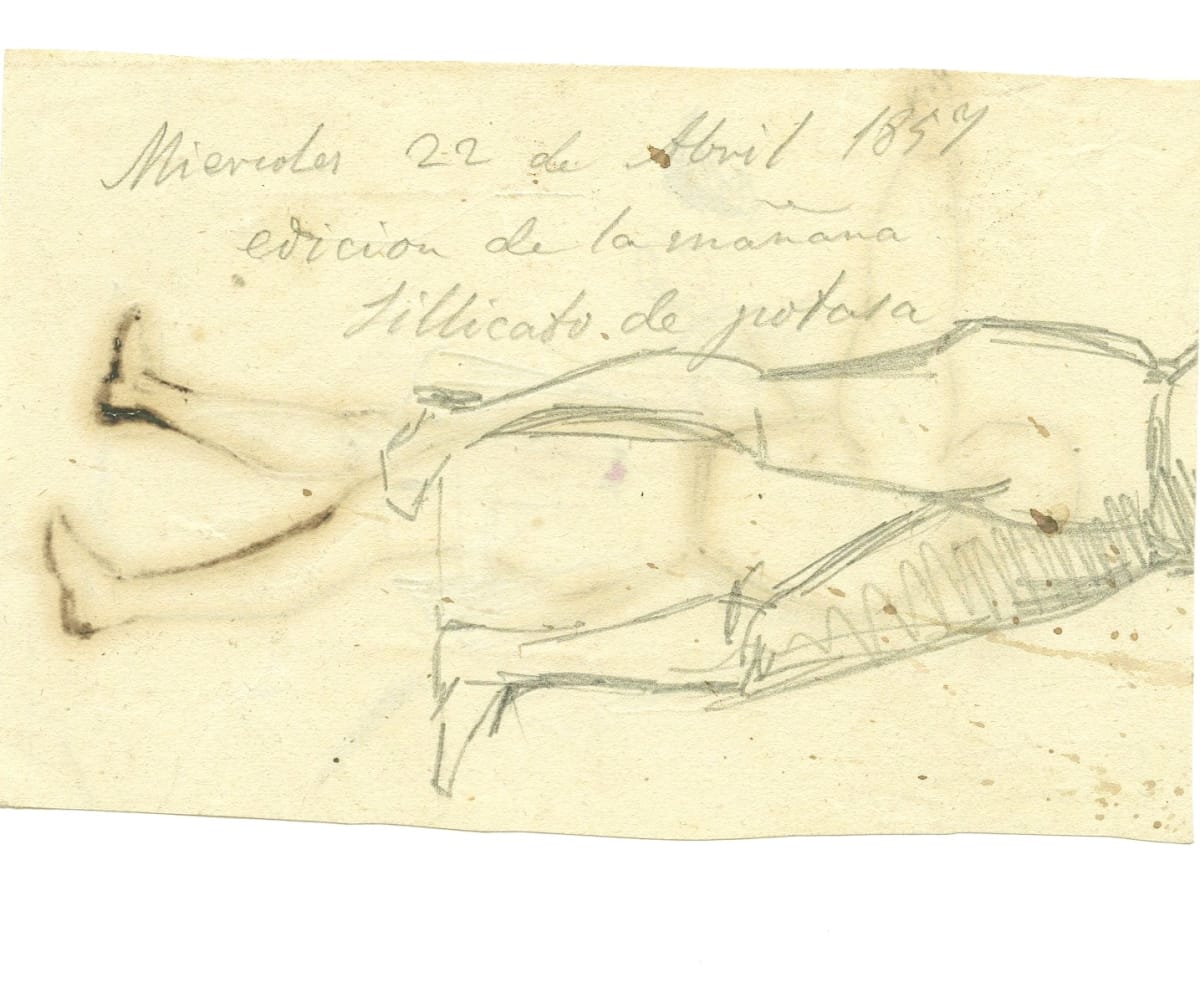 Miercoles 22 de Abril 1857
edicion de la mañana
Sillicato de potasa